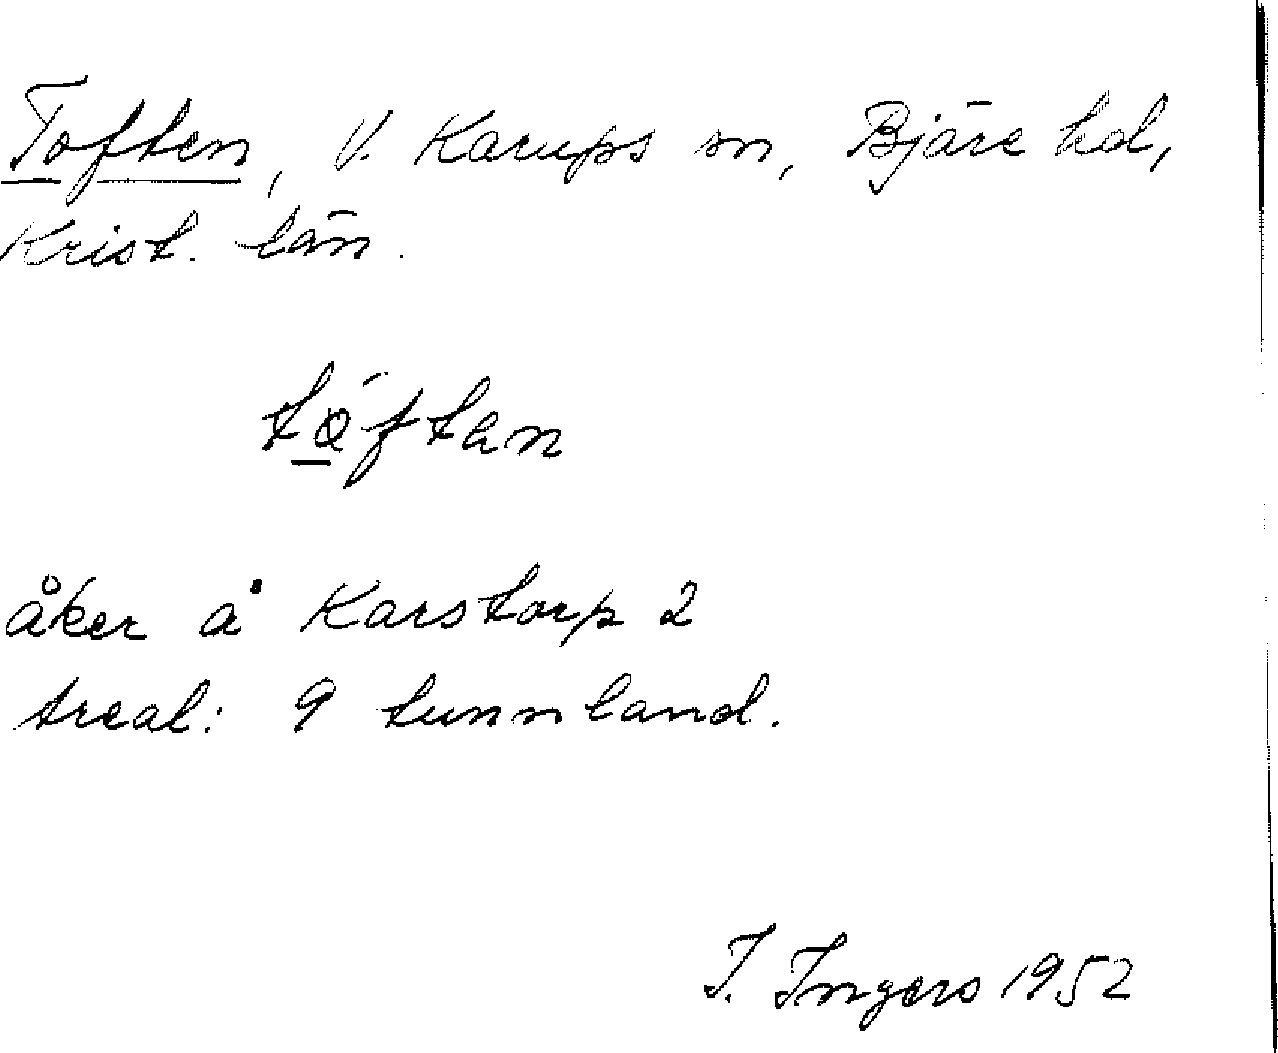 Toften, V. Karups sn, Bjäre hd,
Krist. län.
tǿftan
åker å Karstorp 2
Areal: 9 tunnland.
I. Ingers 1952